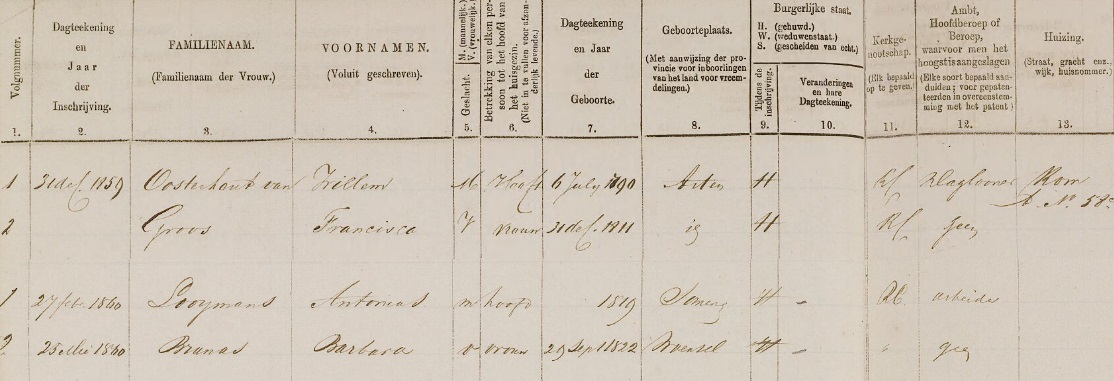 Volgnummer.
Dagteekening
en
Jaar
der
Inschrijving.
FAMILIENAAM.
(Familienaam der Vrouw.)
VOORNAMEN.
(Voluit geschreven).
Geslacht. M. (mannelijk.) V. (vrouwelijk.)
Betrekking van elken persoon tot het hoofd van het huisgezin. (Niet in te vullen voor afzonderlijk levende.)
Dagteekening
en Jaar
der
Geboorte.
Geboorteplaats.
(Met aanwijzing der provincie voor inboorlingen van het land voor vreemdelingen.)
Burgerlijke staat.
H. (gehuwd.)
W. (weduwenstaat.)
S. (gescheiden van echt.)
Tijdens de inschrijving.
Veranderingen
en hare
Dagteekening.
Kerkgenootschap.
(Elk bepaald op te geven.)
Ambt,
Hoofdberoep of
Beroep,
waarvoor men het
hoogst is aangeslagen
(Elke soort bepaald aanduiden; voor gepatenteerden in overeenstemming met het patent)
Huizing.
(Straat, gracht enz., wijk, huisnommer.)
1. 2. 3. 4. 5. 6. 7. 8. 9. 10. 11. 12. 13.
1 31 dec. 1859 Oosterhout van Willem M Hooft 6 July 1790 Asten H Daglooner
A. No. 58
2 Groos Francisca V vrouw 31 dec. 1811 H geen
1 27 1860 Looymans Antonius m hoofd 1819 Someren H - RC. arbeider
2 25 Mei 1860 Brunas Barbara v vrouw 29 Sept 1822 Woensel H - geen